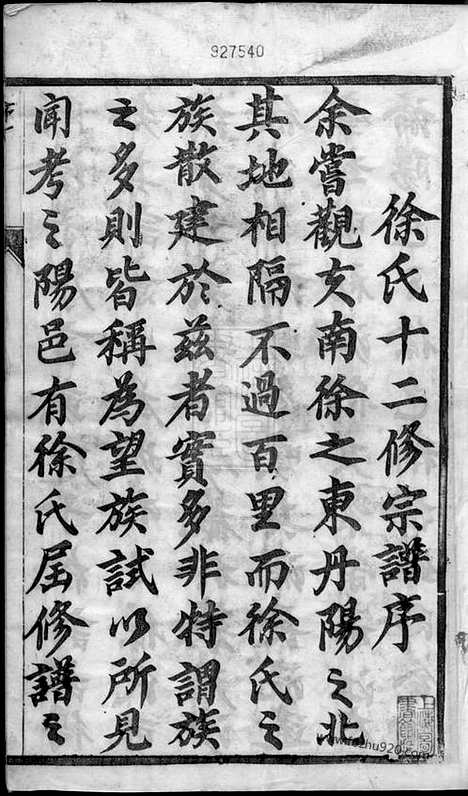 927540
徐氏十二修宗譜序
余嘗觀文南徐之東丹陽之北
其地相隔不過百里而徐氏之
族散建於茲者實多非特謂族
之多則皆稱為望族試以所見
聞考之陽邑有徐氏屆修譜之
www.jiazhu920.com